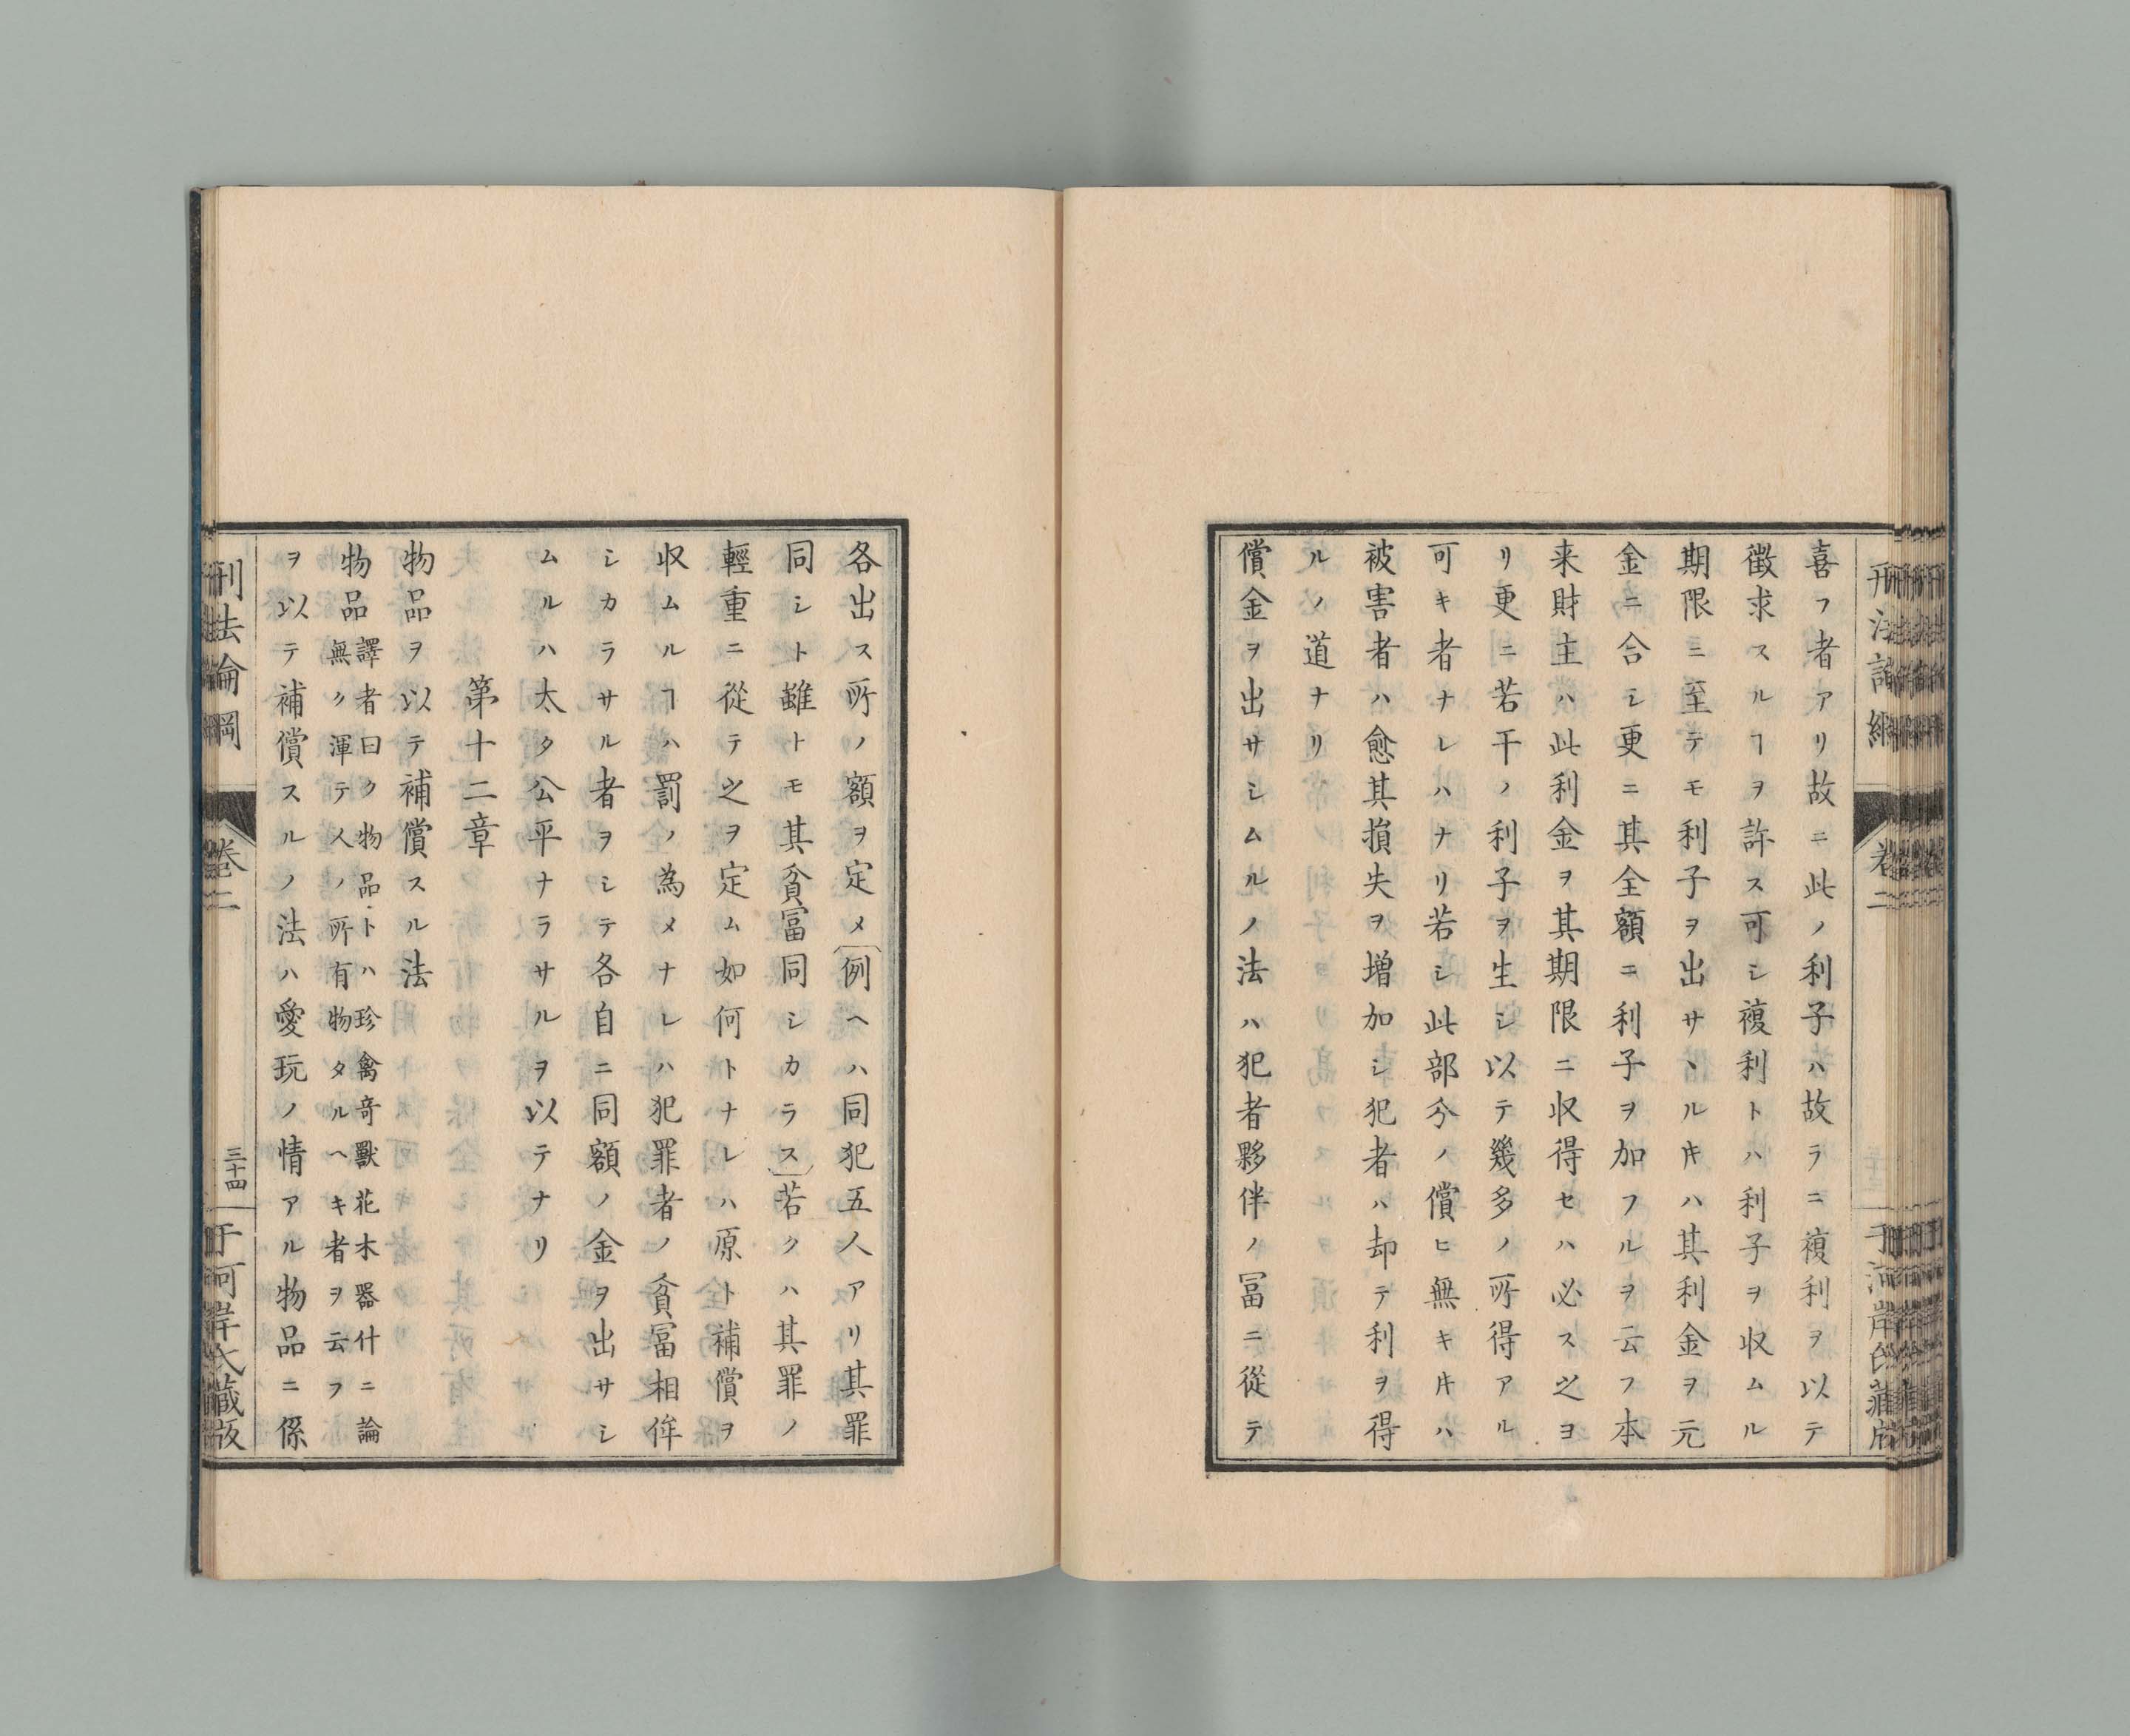 喜フ者アリ故ニ此ノ利子ハ故ラニ複利ヲ以テ
徵求スルヿヲ許ス可シ複利トハ利子ヲ収ムル
期限ニ至テモ利子ヲ出サヽルキハ其利金ヲ元
金ニ合シ更ニ其全額ニ利子ヲ加フルヲ云フ本
来財主ハ此利金ヲ其期限ニ収得セハ必ス之ヨ
リ更ニ若干ノ利子ヲ生シ以テ幾多ノ所得アル
可キ者ナレハナリ若シ此部分ノ償ヒ無キ𪜈ハ
被害者ハ愈其損失ヲ增加シ犯者ハ却テ利ヲ得
ルノ道ナリ
償金ヲ出サシムルノ法ハ犯者夥伴ノ冨ニ從テ
各出ス所ノ額ヲ定メ(例ヘハ同犯五人アリ其罪
同シト雖トモ其貧冨同シカラス)若クハ其罪ノ
輕重ニ從テ之ヲ定ム如何トナレハ原ト補償ヲ
収ムルヿハ罰ノ為メナレハ犯罪者ノ貧冨相侔
シカラサル者ヲシテ各自ニ同額ノ金ヲ出サシ
ムルハ太タ公平ナラサルヲ以テナリ
第十二章
物品ヲ以テ補償スル法
物品 譯者曰ク物品トハ珍禽奇獸花木器什ニ論
無ク渾テ人ノ所有物タルヘキ者ヲ云フ
ヲ以テ補償スルノ法ハ愛玩ノ情アル物品ニ係
刑法論綱
卷二
三十四
于河岸氏藏版